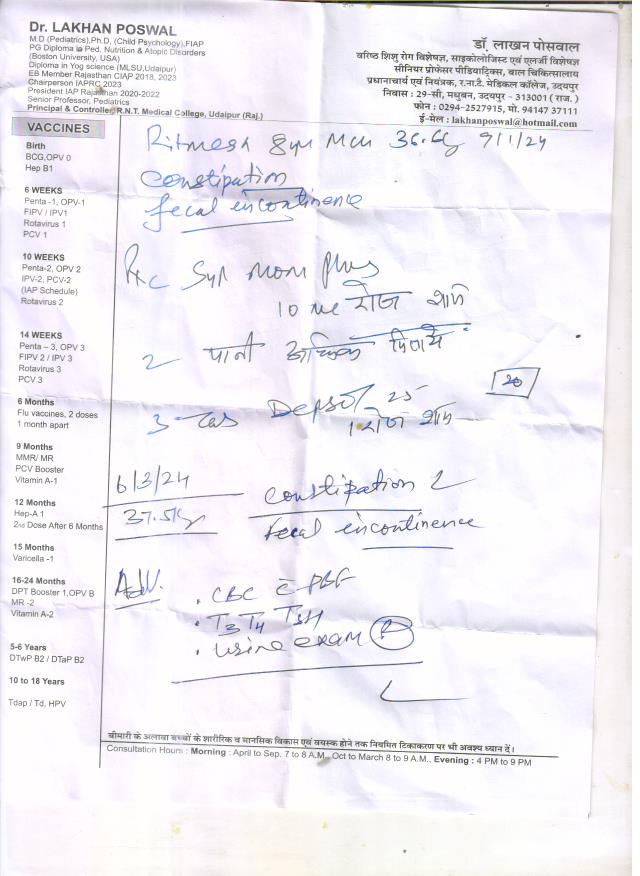 Dr. LAKHAN POSWAL
M.D (Pediatrics),Ph.D, (Child Psychology),FIAP
PG Diploma in Ped. Nutrition & Atopic Disorders
(Boston University, USA)
Diploma in Yog science (MLSU,Udaipur)
EB Member Rajasthan CIAP 2018, 2023
Chairperson IAPRC 2023
President IAP Rajasthan 2020-2022
Senior Professor, Pediatrics
Principal & Controller R.N.T. Medical College, Udaipur (Raj.)
डॉ. लाखन पोसवाल
वरिष्ठ शिशु रोग विशेषज्ञ, साइकोलोजिस्ट एवं एलर्जी विशेषज्ञ
सीनियर प्रोफेसर पीडियाट्रिक्स, बाल चिकित्सालय
प्रधानाचार्य एवं नियन्त्रक, र.ना.टै. मेडिकल कॉलेज, उदयपुर
निवास : 29-सी, मधुवन, उदयपुर - 313001 ( राज. )
फोन : 0294-2527915, मो. 94147 37111
ई-मेल : lakhanposwal@hotmail.com
VACCINES
Birth
BCG,OPV 0
Hep B1
6 WEEKS
Penta -1, OPV-1
FIPV / IPV1
Rotavirus 1
PCV 1
10 WEEKS
Penta-2, OPV 2
IPV-2, PCV-2
(IAP Schedule)
Rotavirus 2
14 WEEKS
Penta – 3, OPV 3
FIPV 2 / IPV 3
Rotavirus 3
PCV 3
6 Months
Flu vaccines, 2 doses
1 month apart
9 Months
MMR/ MR
PCV Booster
Vitamin A-1
12 Months
Hep-A 1
2nd Dose After 6 Months
15 Months
Varicella -1
16-24 Months
DPT Booster 1,OPV B
MR -2
Vitamin A-2
5-6 Years
DTwP B2 / DTaP B2
10 to 18 Years
Tdap / Td, HPV
8yr 9/1/24
Constipation
fecal incontinence
Syr Mom Plus
10 ml रोज शाम
2 पानी अधिक पिलाये
3 - Depsol 25
1 रोज शाम
20
6/3/24
Constipation
37.5kg
Fecal incontinence
Adv. . CBC c PBF
. T3 T4 TSH
. Urine exam R
बीमारी के अलावा बच्चों के शारीरिक व मानसिक विकास एवं वयस्क होने तक नियमित टीकाकरण पर भी अवश्य ध्यान दें।
Consultation Hours : Morning : April to Sep. 7 to 8 A.M., Oct to March 8 to 9 A.M., Evening : 4 PM to 9 PM